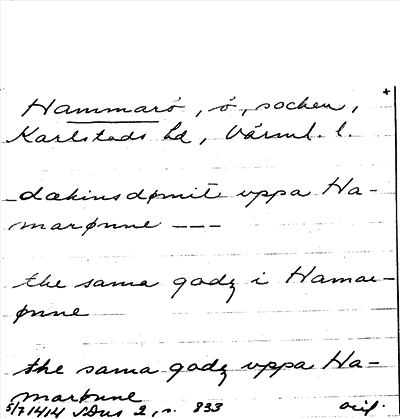 +
Hammarö, ö, socken,
Karlstads hd, Värml. l.
_dækinsdømit vppa Ha-
marønne ---
the sama godz i Hamar-
ønne
the sama godz vppa Ha-
marønne
5/7 1414 SDns 2, s. 833 orig.